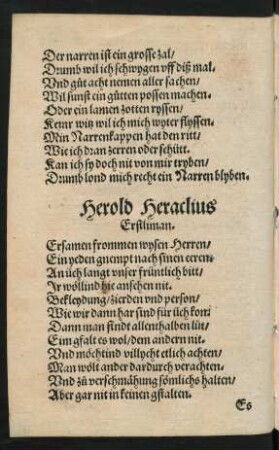 Der narren ist ein grosse zal/
Drumb wil ich schwygen vff diß mal.
Vnd gůt acht nemen aller sachen/
Wil sunst ein gůtten possen machen.
Oder ein lamen zotten ryssen/
Kenr witz wil ich mich wyter flyssen.
Min Narrenkappen hat den ritt/
Wie ich dran zerren oder schütt.
Kan ich sy doch nit von mir tryben/
Drumb lond mich recht ein Narren blyben.
Herold Heraclius
Erstliman.
Ersamen frommen wysen Herren/
Ein yeden gnempt nach sinen eeren.
An üch langt vnser früntlich bitt/
Ir wöllind hie ansehen nit.
Bekleydung/zierden vnd person/
Wie wir dann har sind für üch kon:
Dann man findt allenthalben lüt/
Eim gfalt es wol/dem andern nit.
Vnd möchtind villycht etlich achten/
Man wölt ander dardurch verachten.
Vnd zů verschmähung sömlichs halten/
Aber gar nit in keinen gstalten.
Es